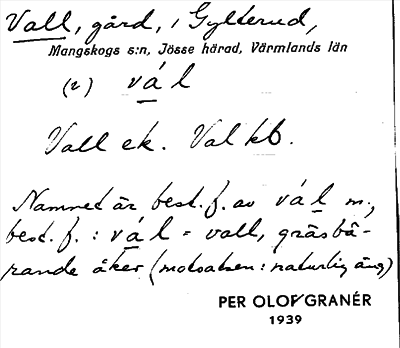 Vall, gård, i Gylterud,
Mangskogs s:n, Jösse härad, Värmlands län
(2) vál
Vall ek. Val kb.
Namnet är best. f. av vál m.,
best. f. : vál = vall, gräsbä-
rande åker (motsatsen: naturlig äng)
PER OLOF GRANÉR
1939